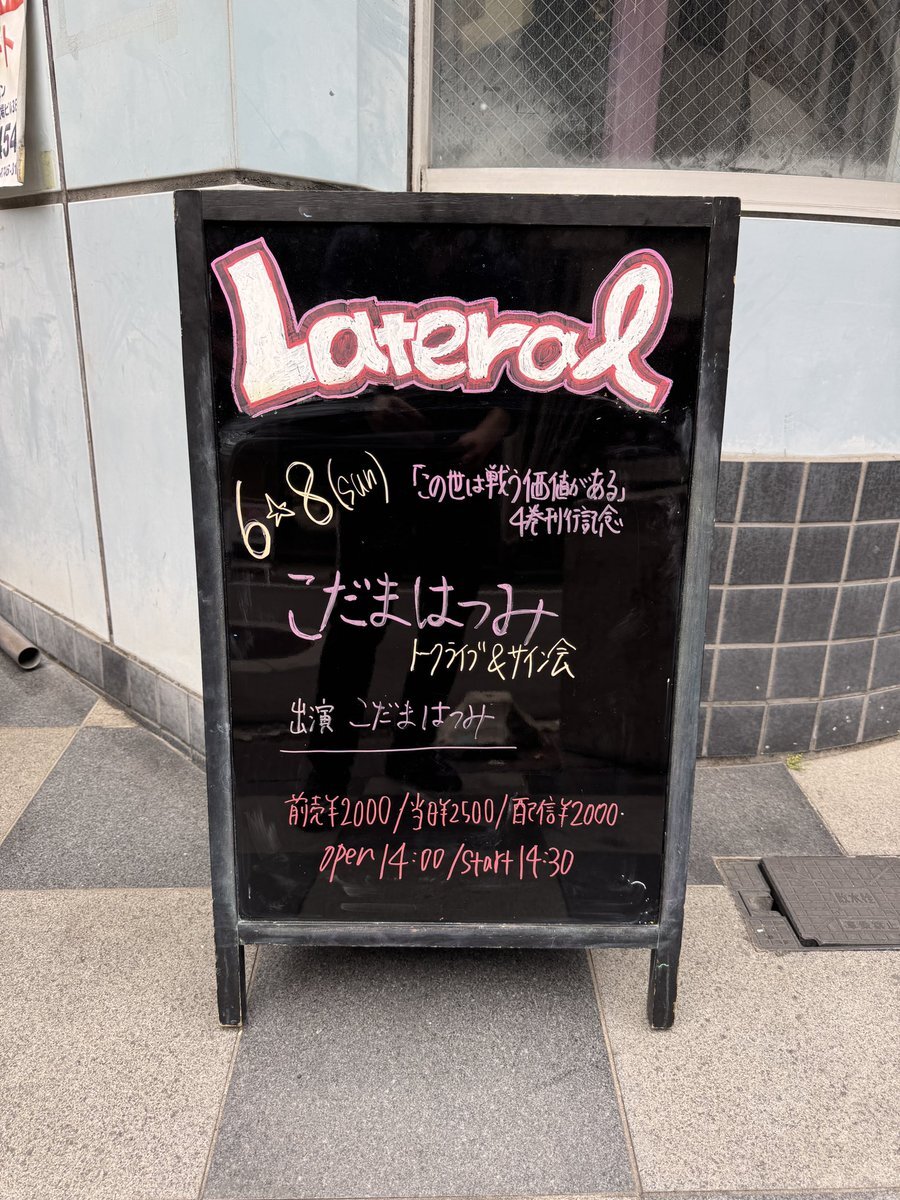 Lateral
6☆8(sun)
「この世は戦う価値がある」
4巻刊行記念
こだまはつみ
トークライブ&サイン会
出演 こだまはつみ
前売¥2000/当日¥2500/配信¥2000
open 14:00/start 14:30
ト
454